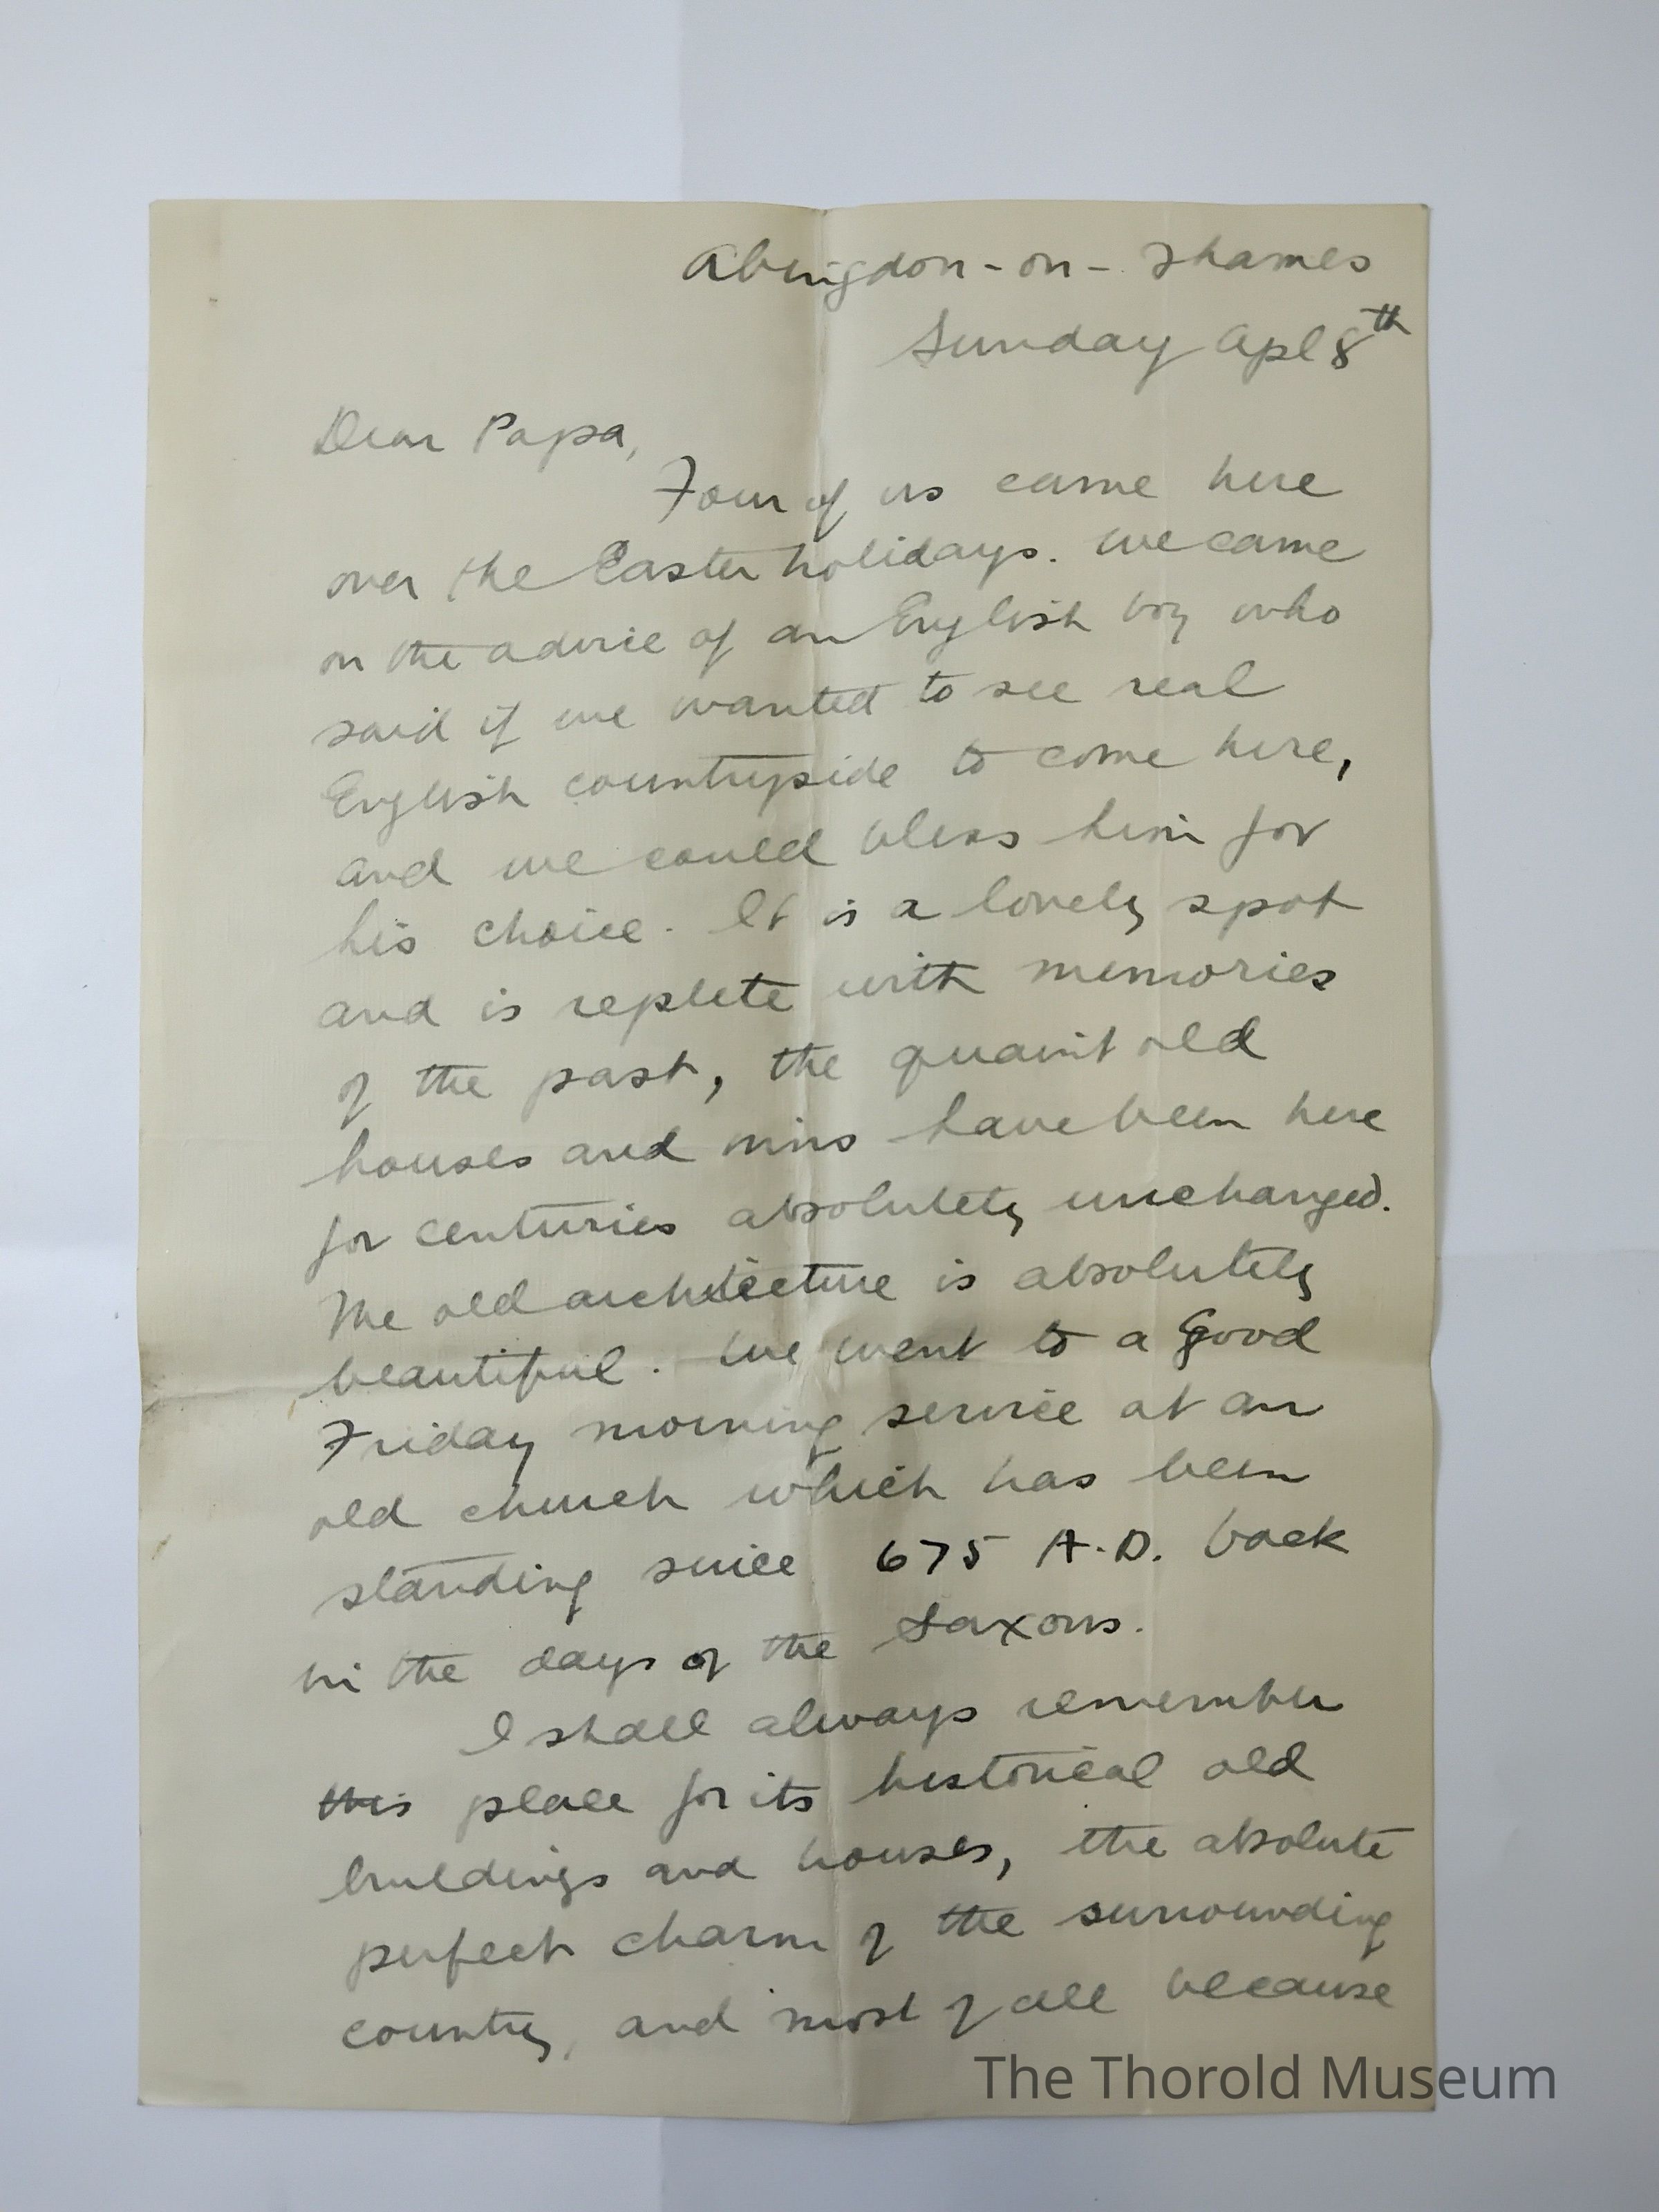 Abingdon-on-Thames
Sunday Apl 8th
Dear Papa,
Four of us came here
over the Easter holidays. We came
on the advice of an English boy who
said if we wanted to see real
English countryside to come here,
and we could bless him for
his choice. It is a lovely spot
and is replete with memories
of the past, the quaint old
houses and inns have been here
for centuries absolutely unchanged.
The old architecture is absolutely
beautiful. We went to a Good
Friday morning service at an
old church which has been
standing since 675 A.D. back
in the days of the Saxons.
I shall always remember
this place for its historical old
buildings and houses, the absolute
perfect charm of the surrounding
country, and most of all because
The Thorold Museum